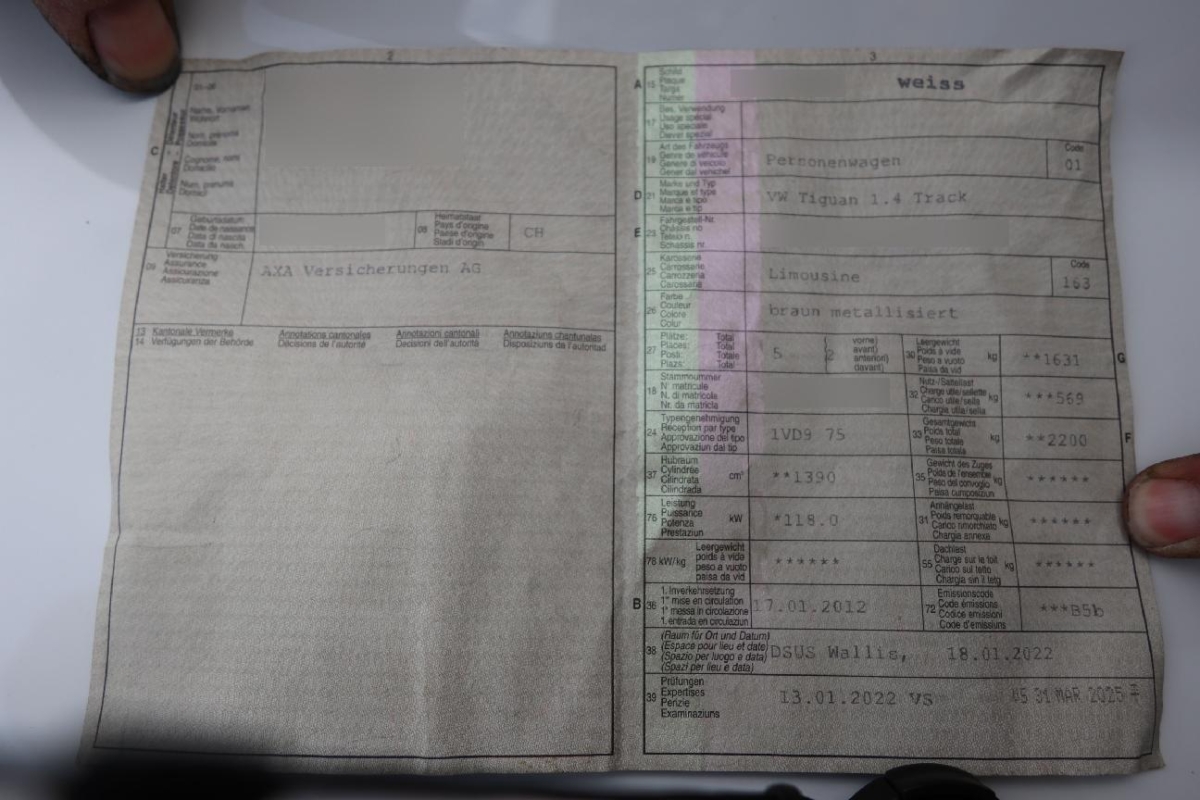 2
3
C
01-06
Name, Vornamen
Wohnort
Nom, prénoms
Domicile
Cognome, nomi
Domicilio
Num, prenums
Domicil
07
Geburtsdatum
Date de naissance
Data di nascita
Data da nasch.
08
Heimatstaat
Pays d'origine
Paese d'origine
Stadi d'origin
CH
09
Versicherung
Assurance
Assicurazione
Assicuranza
AXA Versicherungen AG
13 Kantonale Vermerke
14 Verfügungen der Behörde
Annotations cantonales
Décisions de l'autorité
Annotazioni cantonali
Decisioni dell'autorità
Annotaziuns chantunalas
Disposiziuns da l'autoritad
A 15
Schild
Plaque
Targa
Numer
weiss
17
Bes. Verwendung
Usage spécial
Uso speciale
Diever spezial
19
Art des Fahrzeugs
Genre de véhicule
Genere di veicolo
Gener dal vehichel
Personenwagen
Code
01
D 21
Marke und Typ
Marque et type
Marca e tipo
Marca e tip
VW Tiguan 1.4 Track
E 23
Fahrgestell-Nr.
Châssis no
Telaio n.
Schassis nr.
25
Karosserie
Carrosserie
Carrozzeria
Carossaria
Limousine
Code
163
26
Farbe
Couleur
Colore
Color
braun metallisiert
27
Plätze: Total
Places: Total
Posti: Totale
Plazs: Total
5 (2
vorne)
avant)
anteriori)
davant)
30
Leergewicht
Poids à vide
Peso a vuoto
Paisa da vid
kg
**1631
G
18
Stammnummer
N° matricule
N. di matricola
Nr. da matricla
32
Nutz-/Sattellast
Charge utile/sellette
Carico utile/sella
Chargia utila/sella
kg
***569
24
Typengenehmigung
Réception par type
Approvazione del tipo
Approvaziun dal tip
1VD9 75
33
Gesamtgewicht
Poids total
Peso totale
Paisa totala
kg
**2200
F
37
Hubraum
Cylindrée
Cilindrata
Cilindrada
cm³
**1390
35
Gewicht des Zuges
Poids de l'ensemble
Peso del convoglio
Paisa cumposiziun
kg
******
76
Leistung
Puissance
Potenza
Prestaziun
kW
*118.0
31
Anhängelast
Poids remorquable
Carico rimorchiato
Chargia annexa
kg
******
78 kW/kg
Leergewicht
poids à vide
peso a vuoto
paisa da vid
******
55
Dachlast
Charge sur le toit
Carico sul tetto
Chargia sin il tetg
kg
******
B 36
1. Inverkehrsetzung
1re mise en circulation
1a messa in circolazione
1. entrada en circulaziun
17.01.2012
72
Emissionscode
Code émissions
Codice emissioni
Code d'emissiuns
***B5b
38
(Raum für Ort und Datum)
(Espace pour lieu et date)
(Spazio per luogo e data)
(Spazi per lieu e data)
DSUS Wallis, 18.01.2022
39
Prüfungen
Expertises
Perizie
Examinaziuns
13.01.2022 VS
31 MAR 2025